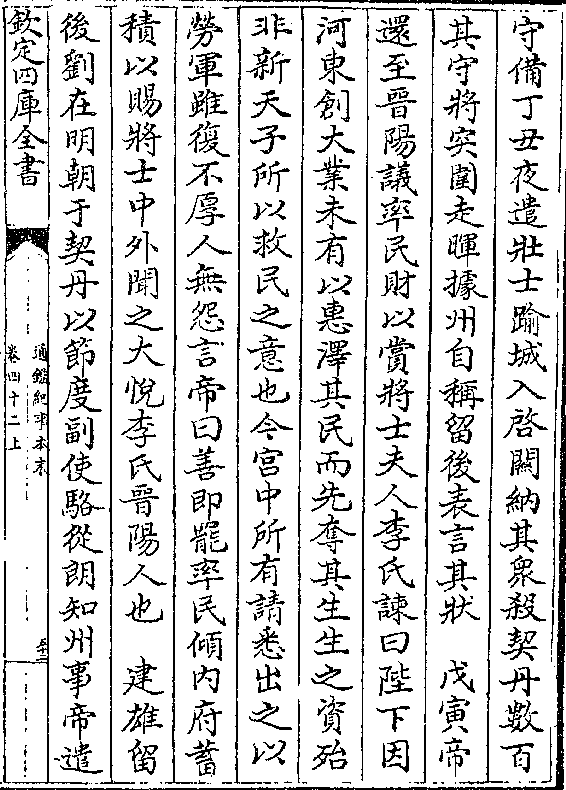 守備丁丑夜遣壯士踰城入啓關納其衆殺契丹數百
其守將突圍走暉據州自稱留後表言其狀　戊寅帝
還至晉陽議率民財以賞將士夫人李氏諫曰陛下因
河東創大業未有以惠澤其民而先奪其生生之資殆
非新天子所以救民之意也今宮中所有請悉出之以
勞軍雖復不厚人無怨言帝曰善即罷率民傾内府蓄
積以賜將士中外聞之大悅李氏晉陽人也　建雄留
後劉在明朝于契丹以節度副使駱從朗知州事帝遣
欽定四庫全書
通鑑紀事本末
卷四十二上